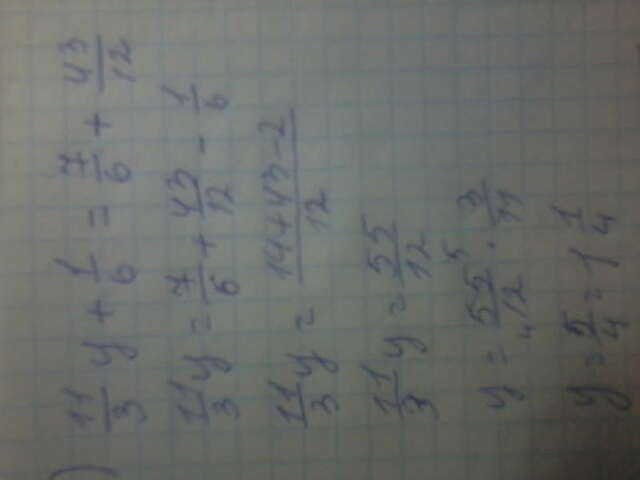 ) 11/3 y + 1/6 = 7/6 + 43/12
11/3 y = 7/6 + 43/12 - 1/6
11/3 y = 14+43-2/12
11/3 y = 55/12
y = 55 5/4 12 · 3/11
y = 5/4 = 1 1/4